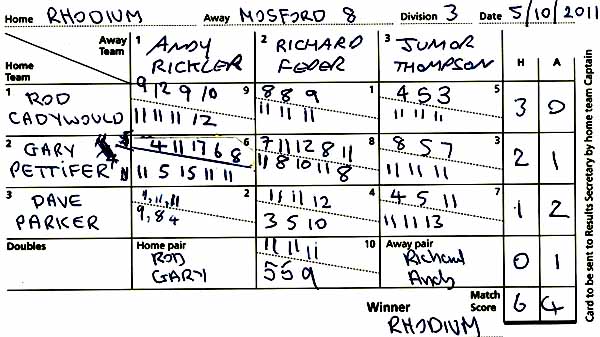 Home RHODIUM Away MOSFORD 8 Division 3 Date 5/10/2011
Away Team
Home Team
1 ANDY RICKLER
2 RICHARD FEDER
3 JUMOR THOMPSON
H A
1 ROD CADYWOULD
9 12 9 10 9
11 11 11 12
8 8 9 1
11 11 11
4 5 3 5
11 11 11
3 0
2 GARY PETTIFER
4 11 17 6 8 6
11 5 15 11 11
7 11 12 8 11 8
11 8 10 11 8
8 5 7 3
11 11 11
2 1
3 DAVE PARKER
11, 11, 11 2
9, 8 4
11 11 12 4
3 5 10
4 5 11 7
11 11 13
1 2
Doubles
Home pair
ROD
GARY
11 11 11 10
5 5 9
Away pair
Richard
Andy
0 1
Winner RHODIUM
Match Score 6 4
Card to be sent to Results Secretary by home team Captain